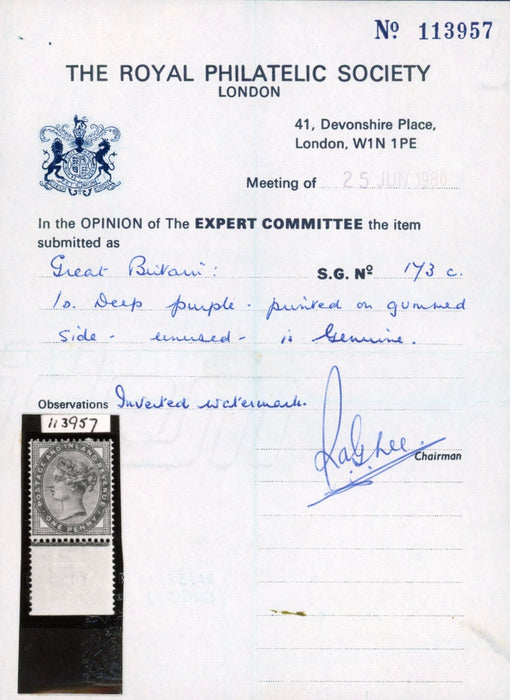 Nº 113957
THE ROYAL PHILATELIC SOCIETY
LONDON
41, Devonshire Place,
London, W1N 1PE
Meeting of 25 JUN 1980
In the OPINION of The EXPERT COMMITTEE the item
submitted as
Great Britain: S.G. Nº 173 c.
1d. Deep purple - printed on gummed
side - unused - is Genuine.
Observations Inverted watermark.
Chairman
113957
POSTAGE AND INLAND REVENUE
ONE PENNY